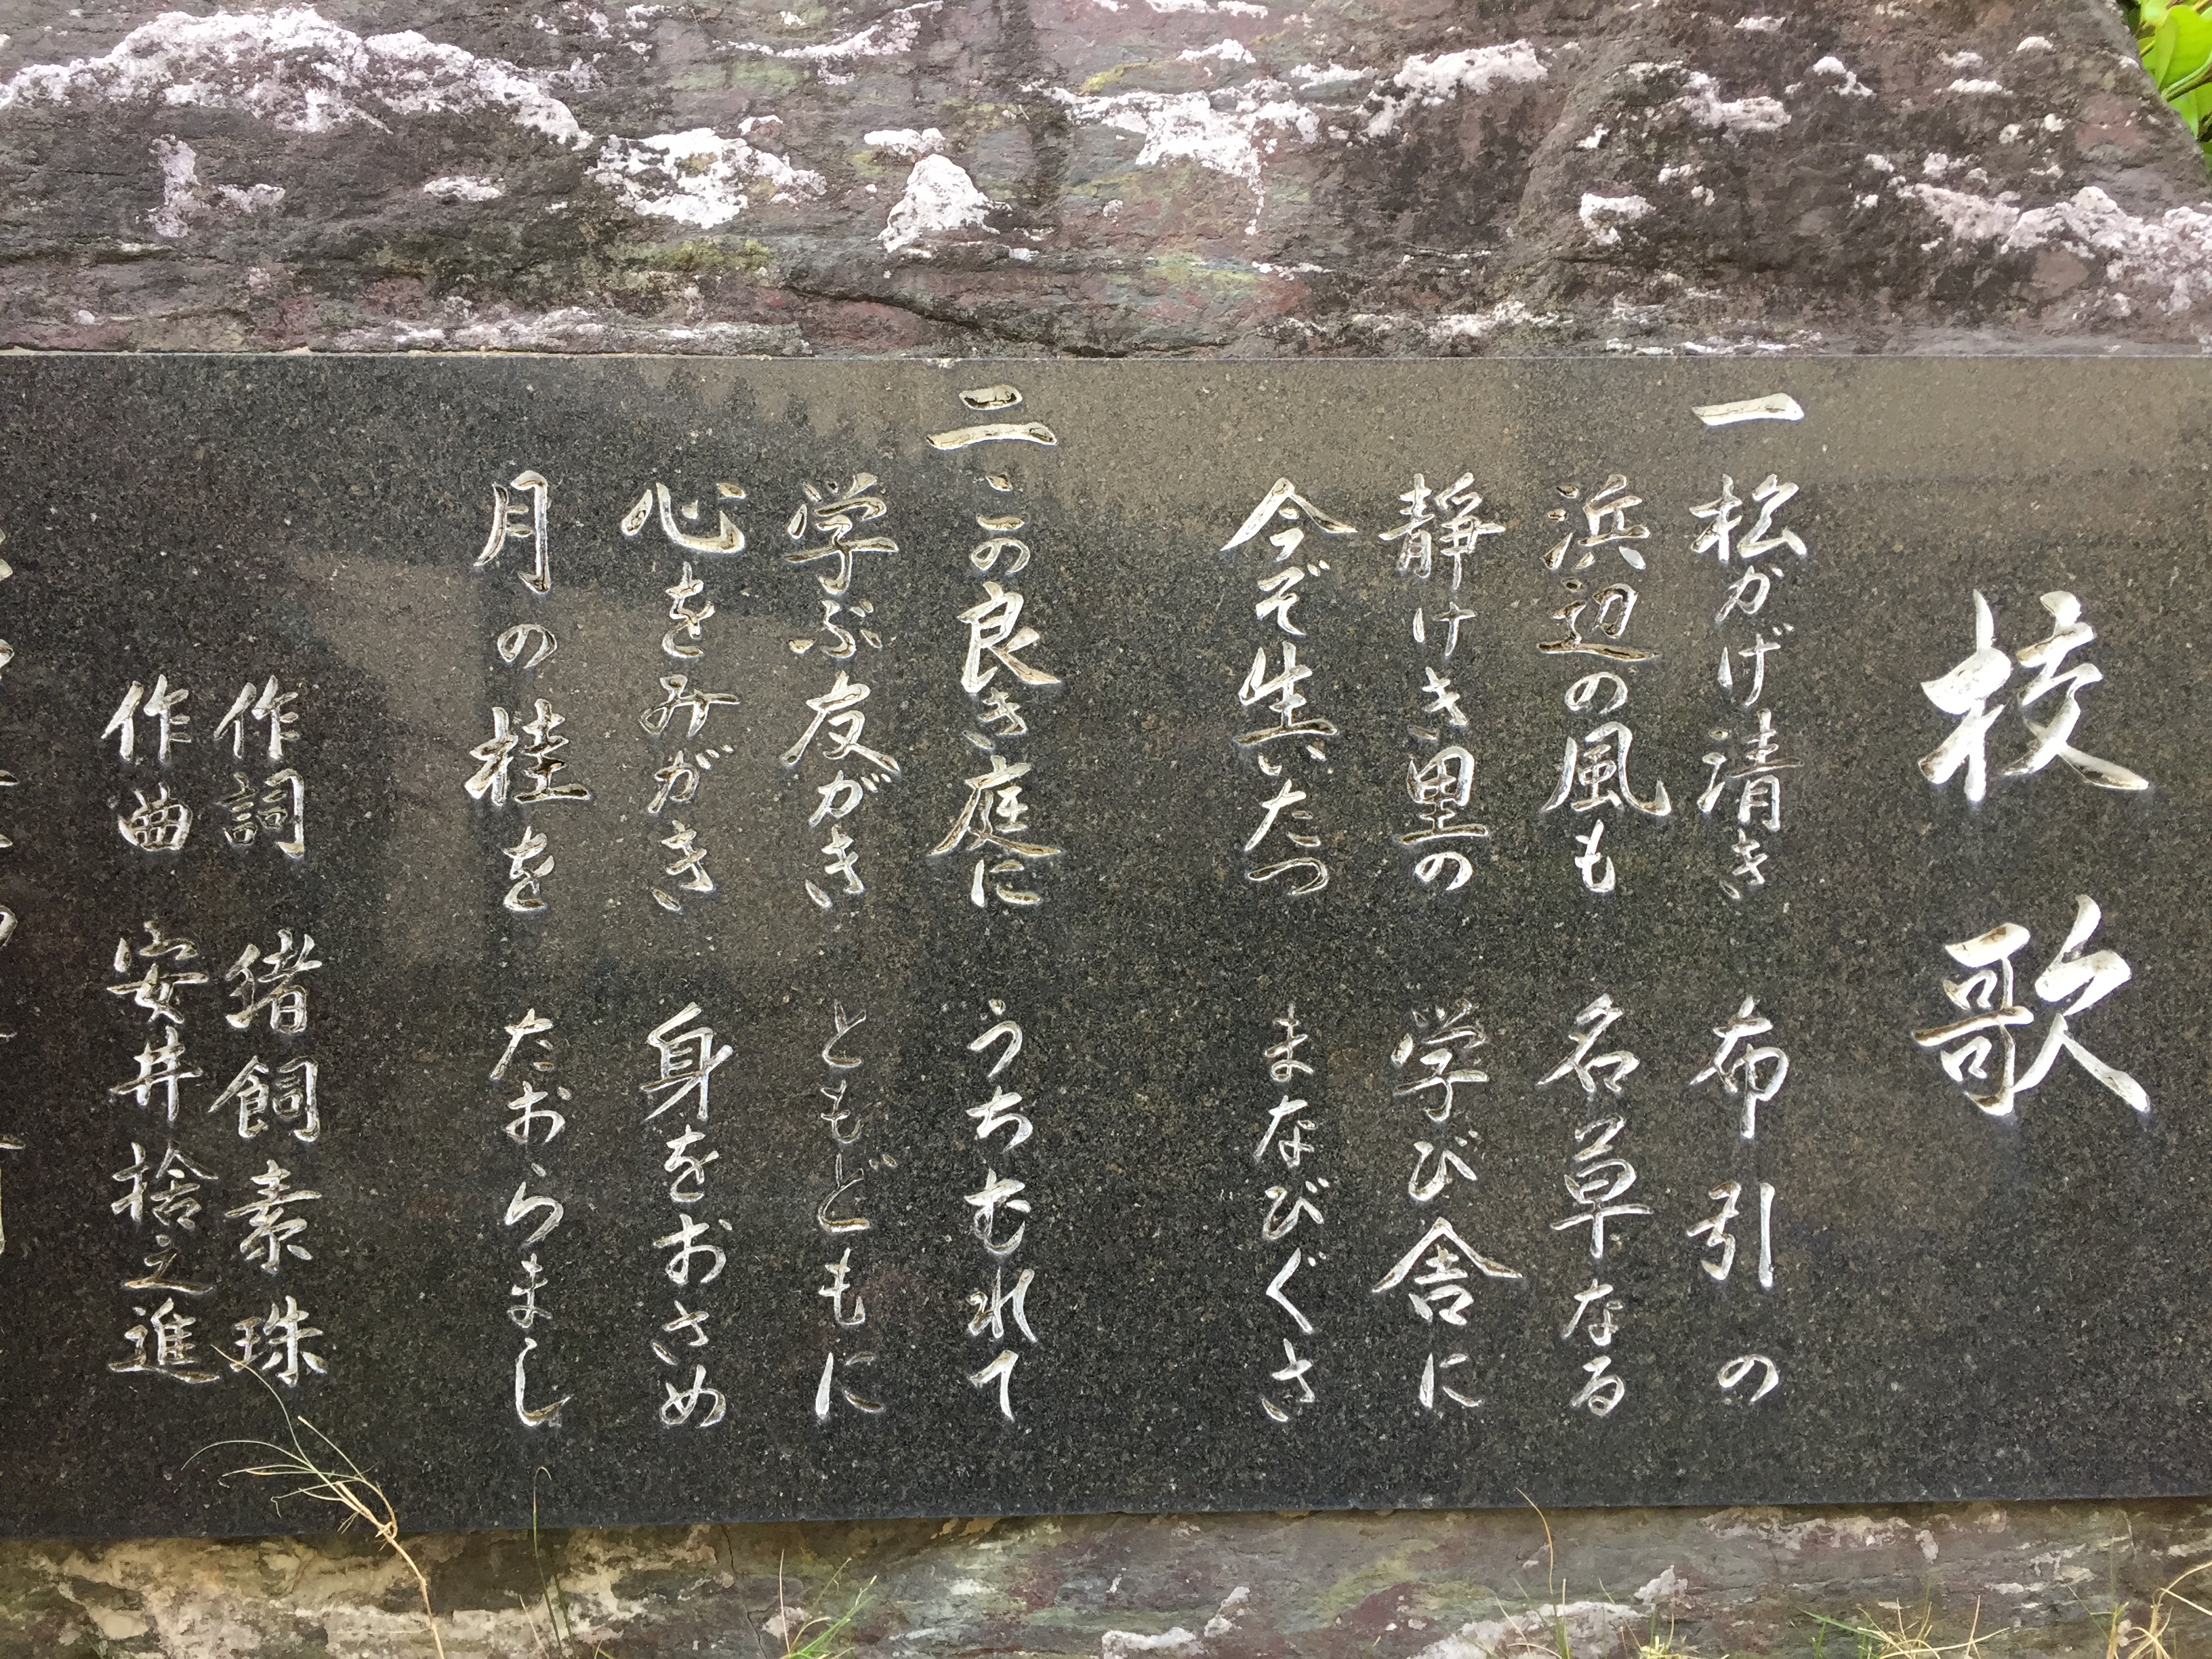 校歌
一 松かげ清き 布引の
浜辺の風も 名草なる
静けき里の 学び舎に
今ぞ生いたつ まなびぐさ
二 この良き庭に うちむれて
学ぶ友がき ともどもに
心をみがき 身をおさめ
月の桂を たおらまし
作詞 猪飼素珠
作曲 安井捨之進